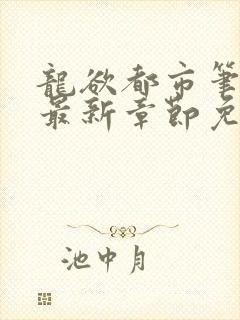 龍欲都市筆
最新章節免
池中月